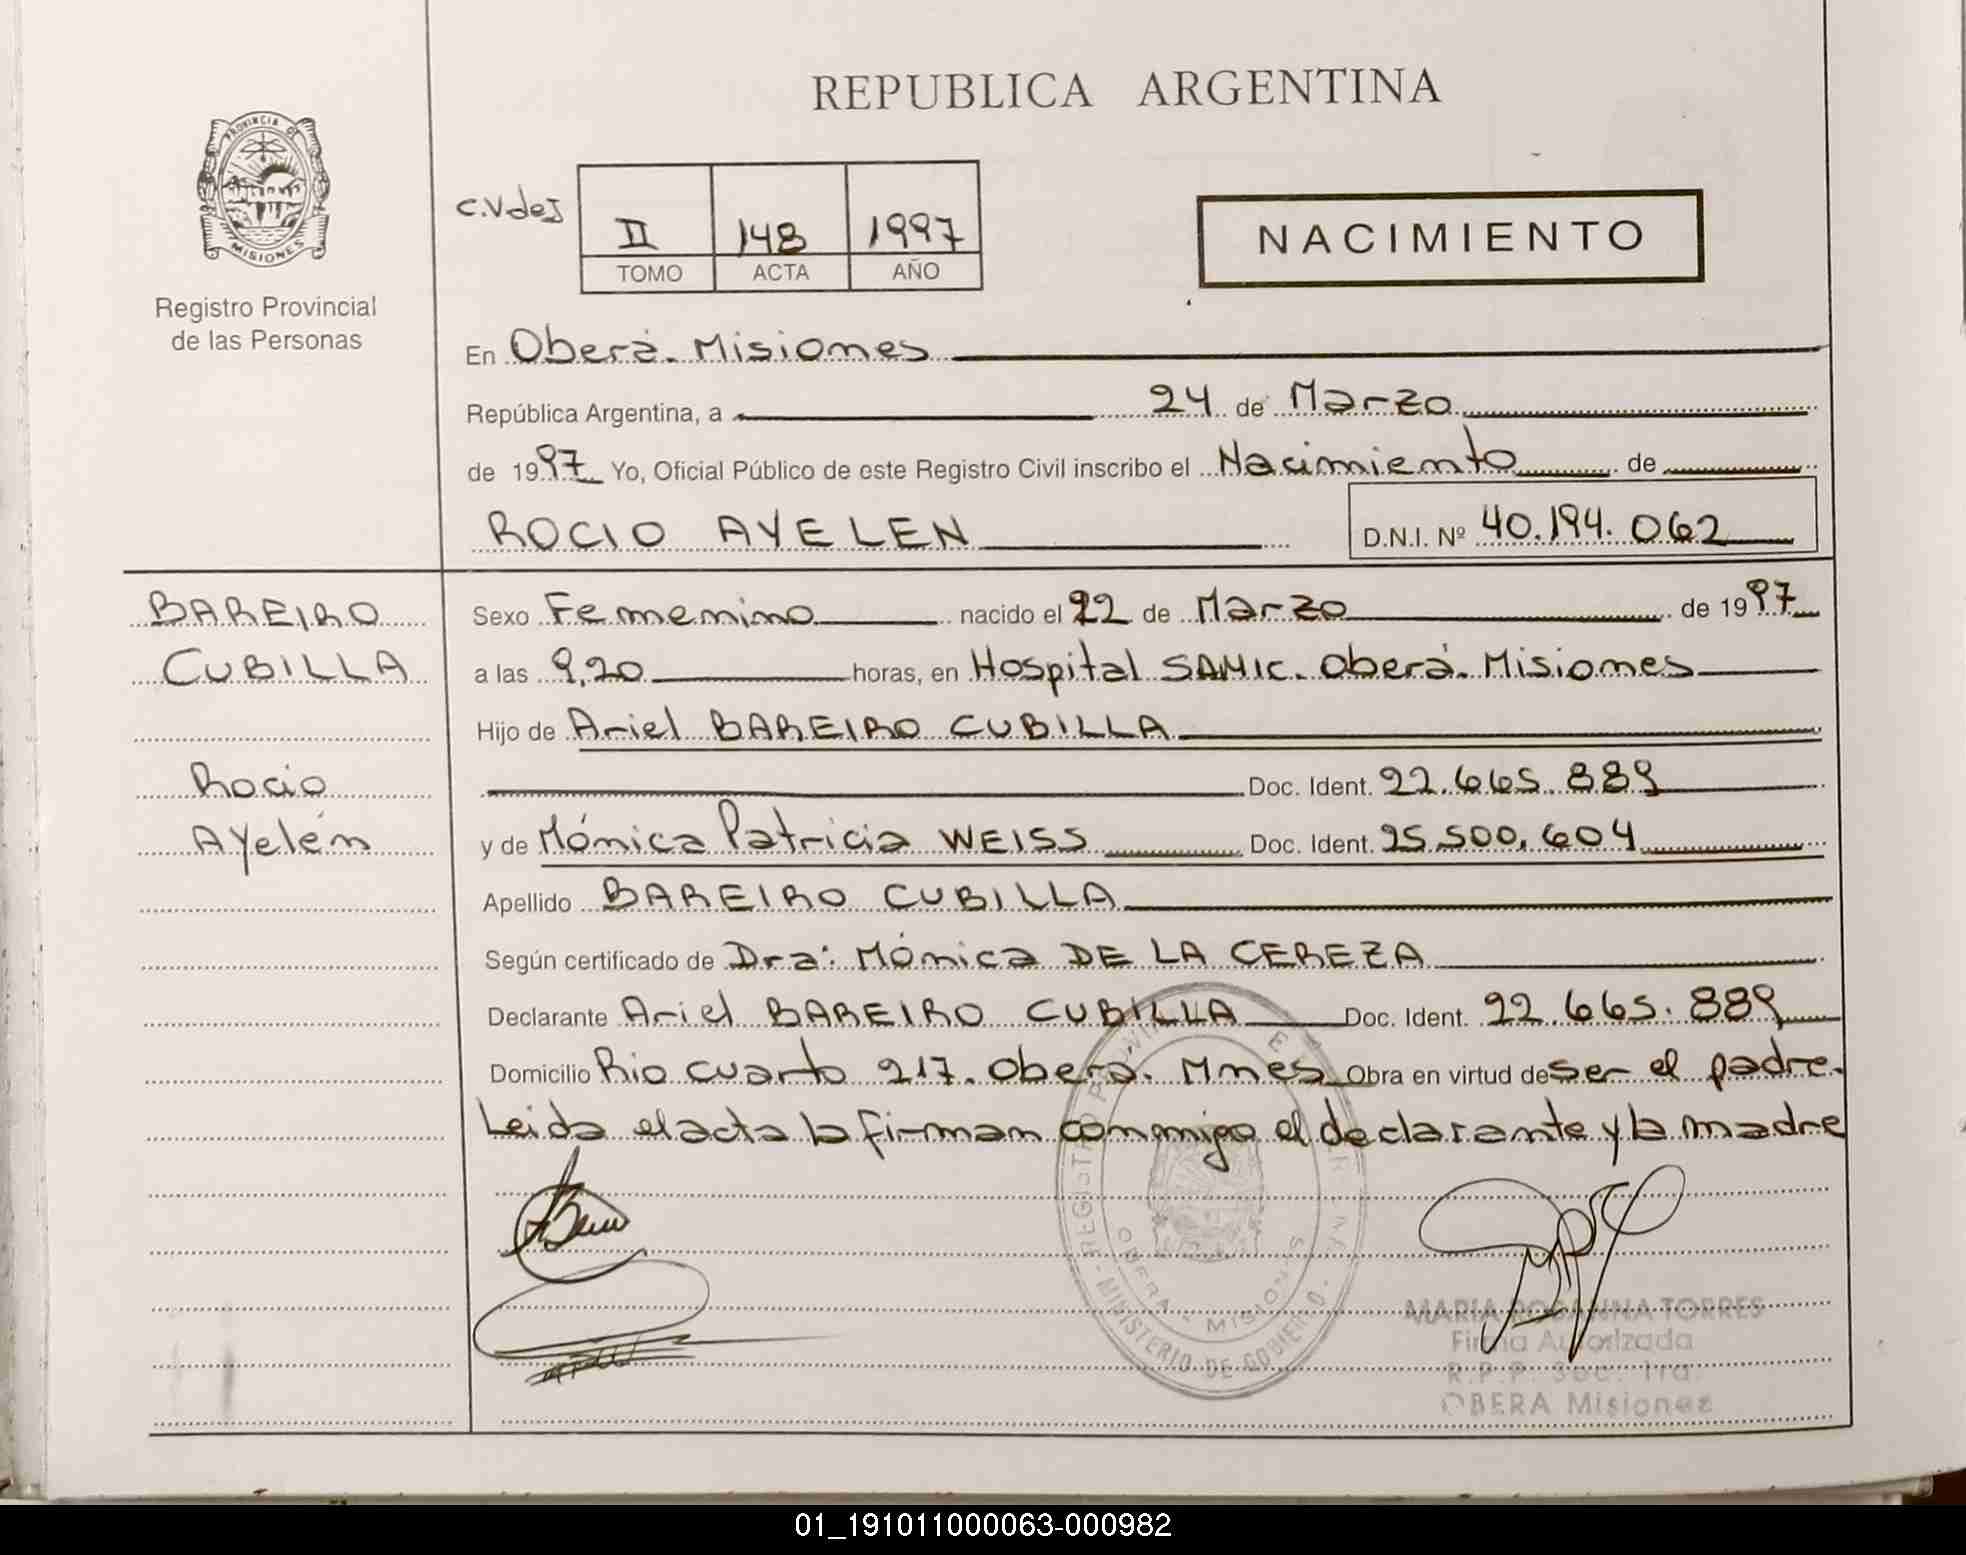 REPUBLICA ARGENTINA
PROVINCIA DE
MISIONES
Registro Provincial
de las Personas
C.V de I
II 148 1997
TOMO ACTA AÑO
NACIMIENTO
En Oberá. Misiones
República Argentina, a 24 de Marzo
de 1997 Yo, Oficial Público de este Registro Civil inscribo el Nacimiento de
ROCIO AYELEN D.N.I. Nº 40.194.062
BAREIRO
CUBILLA
Rocio
Ayelén
Sexo Femenino nacido el 22 de Marzo de 1997
a las 9,20 horas, en Hospital SAMIC. Oberá. Misiones
Hijo de Ariel BAREIRO CUBILLA
Doc. Ident. 22.665.889
y de Mónica Patricia WEISS Doc. Ident. 25.500.604
Apellido BAREIRO CUBILLA
Según certificado de Dra: Mónica DE LA CEREZA
Declarante Ariel BAREIRO CUBILLA Doc. Ident. 22.665.889
Domicilio Rio cuarto 217. Oberá. Mnes Obra en virtud de ser el padre.
Leida el acta la firman conmigo el declarante y la madre
MINISTERIO DE GOBIERNO
OBERA - MISIONES
MARIA ROSANNA TORRES
Firma Autorizada
R.P.P. Sec. 1ra.
OBERA Misiones
01_191011000063-000982